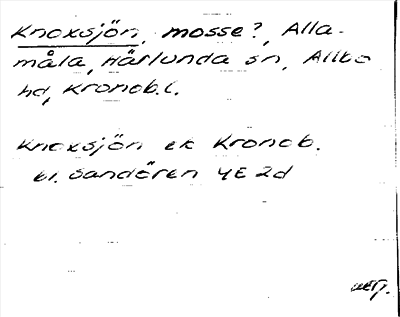 Knoxsjön, mosse?, Alla-
måla, Härlunda sn, Allbo
hd, Kronob.l.
Knoxsjön ek Kronob.
bl. Sandören 4E 2d